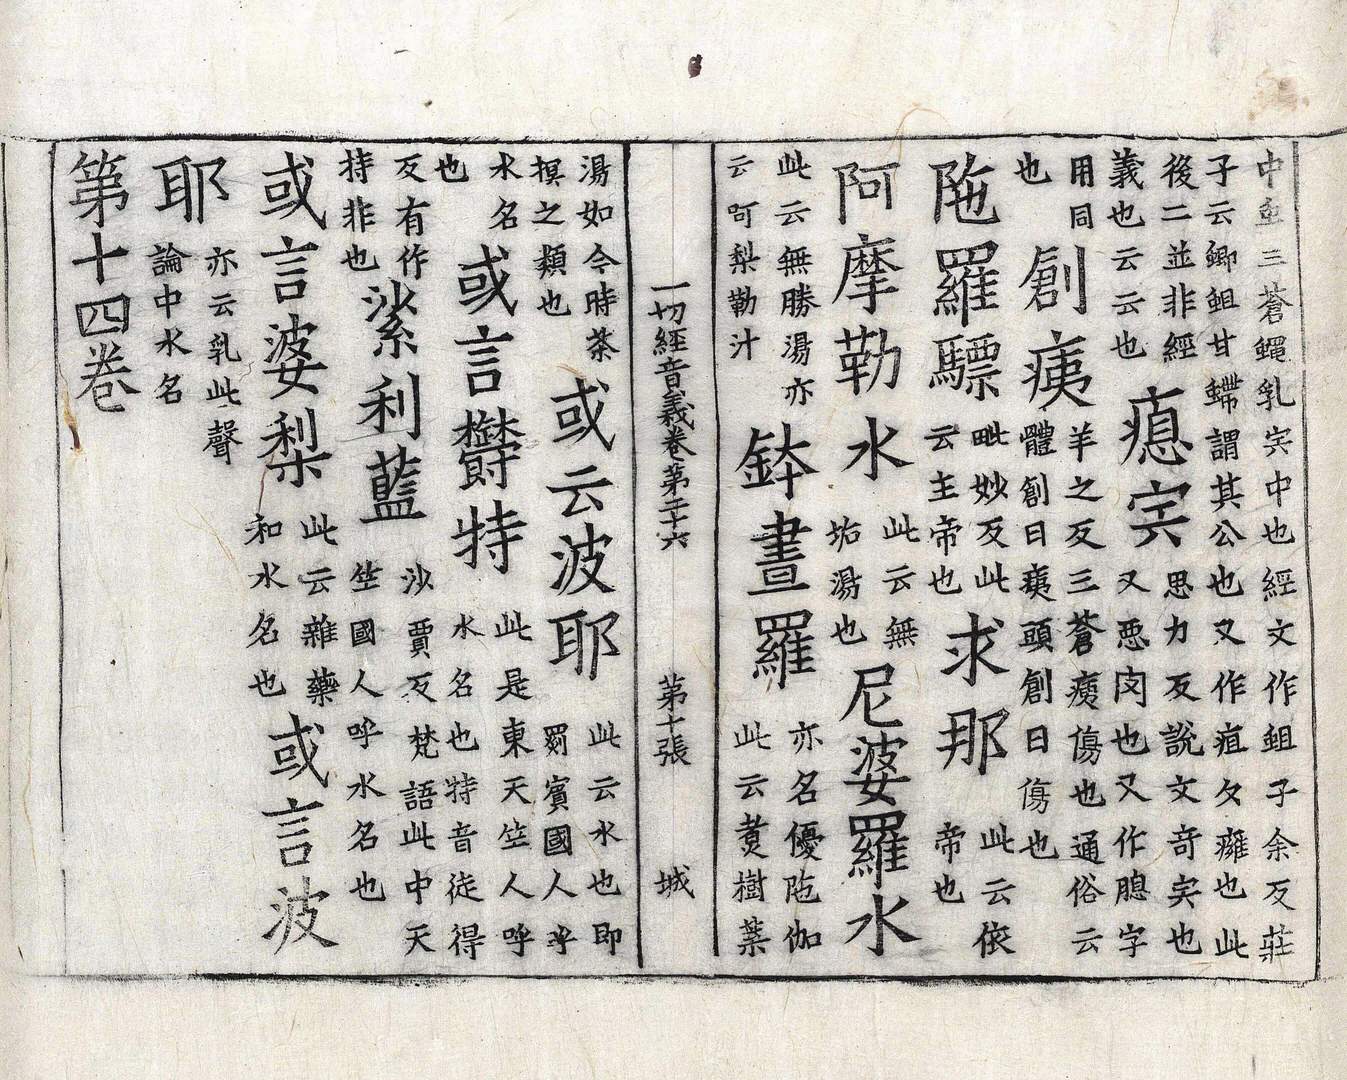 中𧉈三蒼蠅乳宍中也經文作蛆子余反莊
子云螂蛆甘螮謂其公也又作疽久癰也此
後二並非經
義也云云也
瘜宍
思力反說文奇宍也
又惡肉也又作膇字
用同
也
創痍
羊之反三蒼痍傷也通俗云
體創曰痍頭創曰傷也
陁羅驃
毗妙反此
云主帝也
求那
此云依
帝也
阿摩勒水
此云無
垢湯也
尼婆羅水
此云無勝湯亦
云呵梨勒汁
鉢晝羅
亦名優陁伽
此云煑樹葉
一切經音義卷第二十六 第十張 城
湯如今時茶
摸之類也
或云波耶
此云水也即
罽賓國人呼
水名
也
或言欝特
此是東天竺人呼
水名也特音徒得
反有作
持非也
娑利藍
沙賈反梵語此中天
竺國人呼水名也
或言婆梨
此云雜藥
和水名也
或言波
耶
亦云乳此聲
論中水名
第十四卷